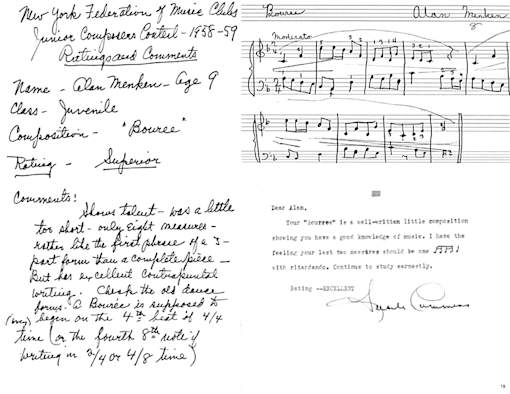 New York Federation of Music Clubs
Junior Composers Contest - 1958-59
Ratings and Comments
Name - Alan Menken - Age 9
Class - Juvenile
Composition - "Bouree"
Rating - Superior
Comments:
Shows talent - was a little
too short - only eight measures -
rather like the first phrase of a 3-
part form than a complete piece -
But has excellent Contrapuntal
writing. Check the old dance
forms. A Bourée is supposed to
(may) begin on the 4th beat of 4/4
time (or the fourth 8th note if
writing in 2/4 or 4/8 time)
Bourée
Alan Menken
Moderato
Dear Alan,
Your "Bourree" is a well-written little composition
showing you have a good knowledge of music. I have the
feeling your last two measures should be one
with ritardando. Continue to study earnestly.
Rating --EXCELLENT